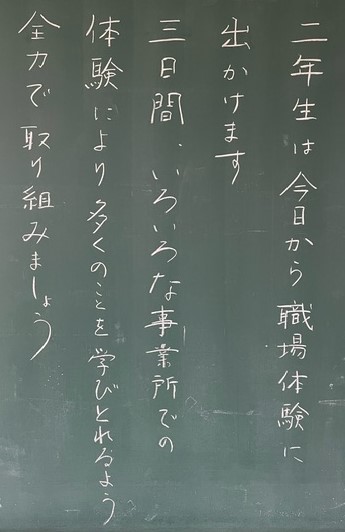 二年生は今日から職場体験に
出かけます
三日間、いろいろな事業所での
体験により多くのことを学びとれるよう
全力で取り組みましょう